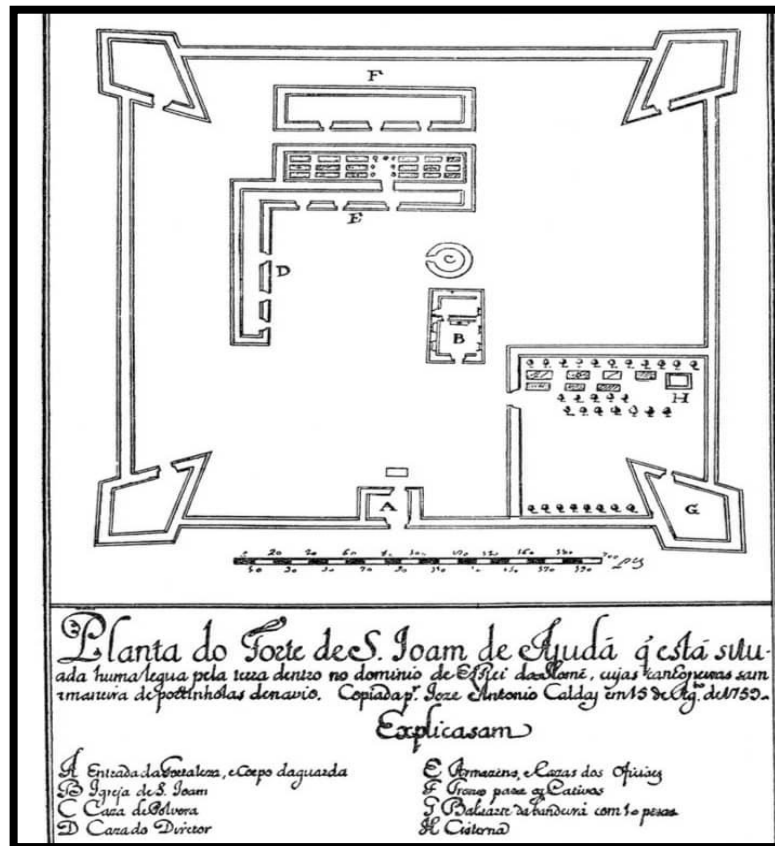 F
E
D
C
B
H
A
G
20
Planta do Forte de S. Joam de Ajudá q̃ está situ-
ada huma legua pela terra dentro no dominio de ElRei da Homé, cujas sam
a maneira de portinholas de navio. Copiada pr. Joze Antonio Caldas em 15 de Ag. de 1759.
Explicasam
A Entrada da Fortaleza, e Corpo da guarda
B Igreja de S. Joam
C Caza de Polvora
D Caza do Director
E Armazens, e Cazas dos Ofisiaes
F para os Cativos
G Baluarte da bandeira com 10 pesas
H Cisterna